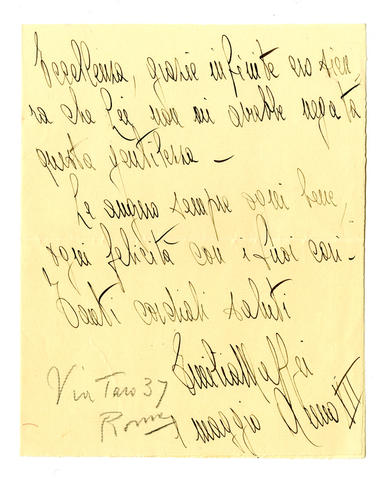 Eccellenza, grazie infinite ero sicu-
ra che Lei non mi avrebbe negata
questa gentilezza –
Le auguro sempre ogni bene,
ogni felicità con i Suoi cari –
Tanti cordiali saluti
Emilia Maffei
Via Taro 37
Roma
1 maggio Anno VII